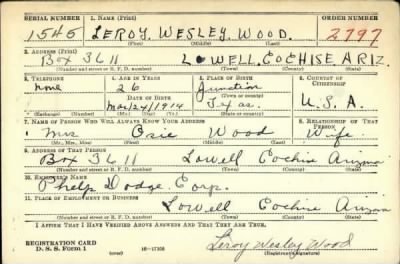 SERIAL NUMBER 1. NAME (Print) ORDER NUMBER
1545 LEROY, WESLEY, WOOD. 2797
(First) (Middle) (Last)
2. ADDRESS (Print)
Box 3611 LOWELL, COCHISE ARIZ.
(Number and street or R. F. D. number) (Town) (County) (State)
3. TELEPHONE 4. AGE IN YEARS 5. PLACE OF BIRTH 6. COUNTRY OF CITIZENSHIP
none 26 Junction
DATE OF BIRTH
Mar/24/1914 Texas. U.S.A.
(Exchange) (Number) (Mo.) (Day) (Yr.) (Town or county) (State or country)
7. NAME OF PERSON WHO WILL ALWAYS KNOW YOUR ADDRESS 8. RELATIONSHIP OF THAT PERSON
Mrs Osie Wood Wife
(Mr., Mrs., Miss) (First) (Middle) (Last)
9. ADDRESS OF THAT PERSON
Box 3611 Lowell Cochise Arizona
(Number and street or R. F. D. number) (Town) (County) (State)
10. EMPLOYER'S NAME
Phelp Dodge. Corp.
11. PLACE OF EMPLOYMENT OR BUSINESS
Lowell Cochise Arizona
(Number and street or R. F. D. number) (Town) (County) (State)
I AFFIRM THAT I HAVE VERIFIED ABOVE ANSWERS AND THAT THEY ARE TRUE.
REGISTRATION CARD
D. S. S. Form 1 (over) Leroy Wesley Wood
(Registrant's signature)